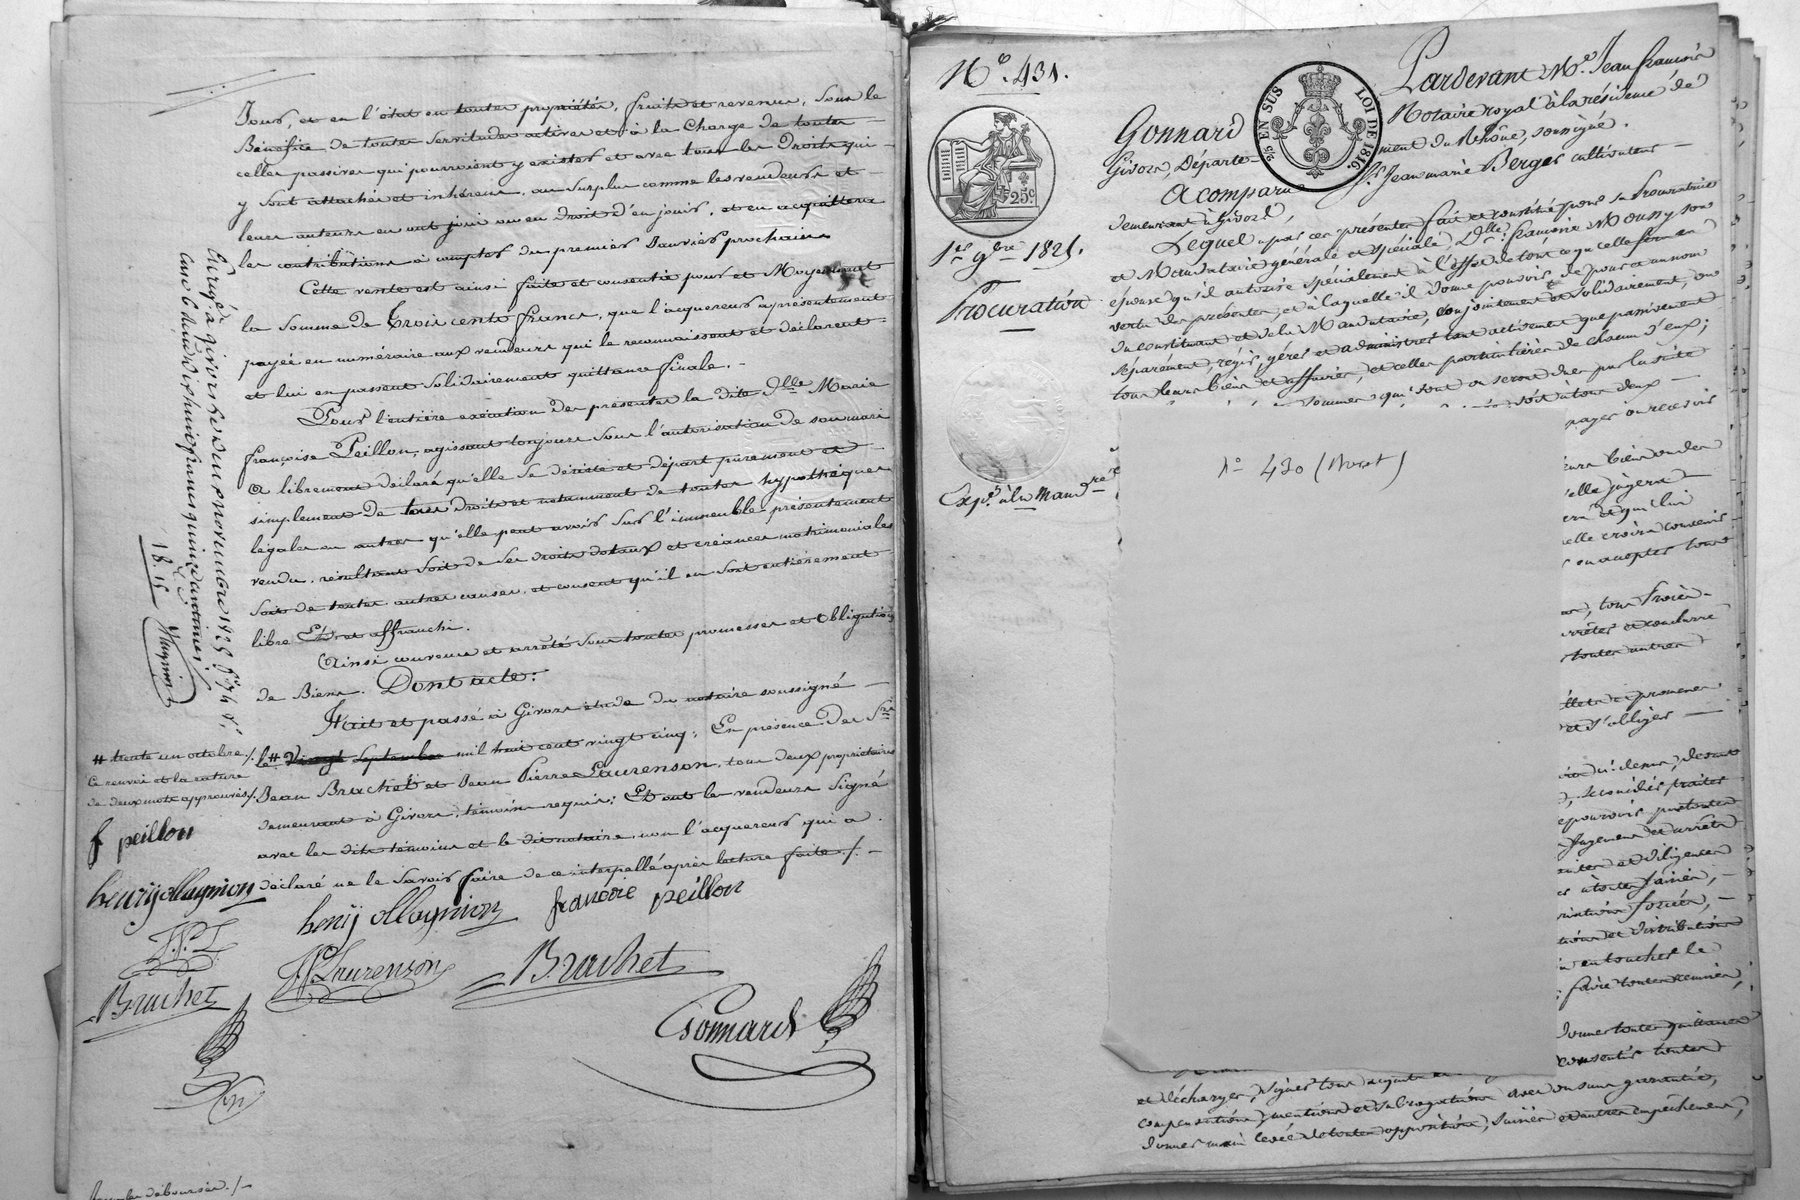 Jour, et en l'état en toutes propriétés, fruits et revenus, Sous le
Bénéfice de toutes Servitudes actives et à la Charge de toutes
celles passives qui pourroient y exister et avec tous les Droits qui
y sont attachés et inhérens, au Surplus comme les vendeurs et
leurs auteurs en ont joui ou eu droit d'en jouir, et en acquittera
les contributions à compter du premier Janvier prochain
Cette vente est ainsi faite et consentie pour et Moyennant
la Somme de trois cents francs, que l'acquereur a présentement
payée en numéraire aux vendeurs qui le reconnaissent et déclarent
et lui en passent Solidairement quittance finale.
Pour l'entière exécution des présentes la dite Dlle Marie
françoise Peillon, agissant toujours sous l'autorisation de son mari
a librement déclaré qu'elle se désiste et départ purement et
simplement de tous droits et notamment de toutes hypothèques
légales en autres qu'elle peut avoir sur l'immeuble présentement
vendu, résultant Soit de Ses droits dotaux et créances matrimoniales
Soit de toutes autres causes, et consent qu'il en Soit entièrement
libre Et affranchi.
Ainsi convenu et arrêté Sous toutes promesses et Obligations
de Biens. Dont acte.
Fait et passé à Givors étude du notaire soussigné
le # mil huit cent vingt cinq; En présence de Srs
Jean Brachet et Jean Pierre Laurenson, tous deux propriétaires
demeurant à Givors, témoins requis; Et ont les vendeurs Signé
avec les dits témoins et le dit notaire, non l'acquereur qui a
déclaré ne le Savoir faire de ce interpellé après lecture faite./.
# trente un octobre./.
Ce renvoi et la rature
de deux mots approuvés/.
f peillon
henry ollagnion
henry ollagnion
francoise peillon
J.P.L
JP Laurenson
Brachet
Brachet
Gonnard
Enregé à givors le deux novembre 1825 fo 74 vo
18.15
N° 431.
25c
1er 9bre 1825.
Procuration
Expon à la Mandre
2/5 EN SUS
LOI DE 1816.
Pardevant Me Jean françois
Gonnard Notaire royal à la résidence de
Givors, Département du Rhône, soussigné.
A comparu Sr Jean marie Berger cultivateur
demeurant à Givors,
Lequel a par ces présentes fait et constitué pour Sa Procuratrice
et Mandataire générale et Spéciale, Dlle françoise Mousry son
épouse qu'il autorise spécialement à l'effet de tout ce qu'elle fera en
vertu des présentes, et à laquelle il donne pouvoir de pour et au nom
du constituant et de la Mandataire, conjointement et Solidairement, ou
séparément, régir, gérer et administrer tant activement que passivement
tous leurs biens et affaires, et celles particulières de chacun d'eux;
N° 430 (Brevet)
payer ou recevoir
elle jugera
elle croira convenir
ou accepter tous
arrêter et conclure
toutes autres
et s'obliger
faire toutes remises,
donner toutes quittances
consentir toutes
et décharges, signer tous acquits
compensations, mentions et subrogations avec ou sans garantie,
donner main levée de toutes oppositions, Saisies et autres empêchemens,